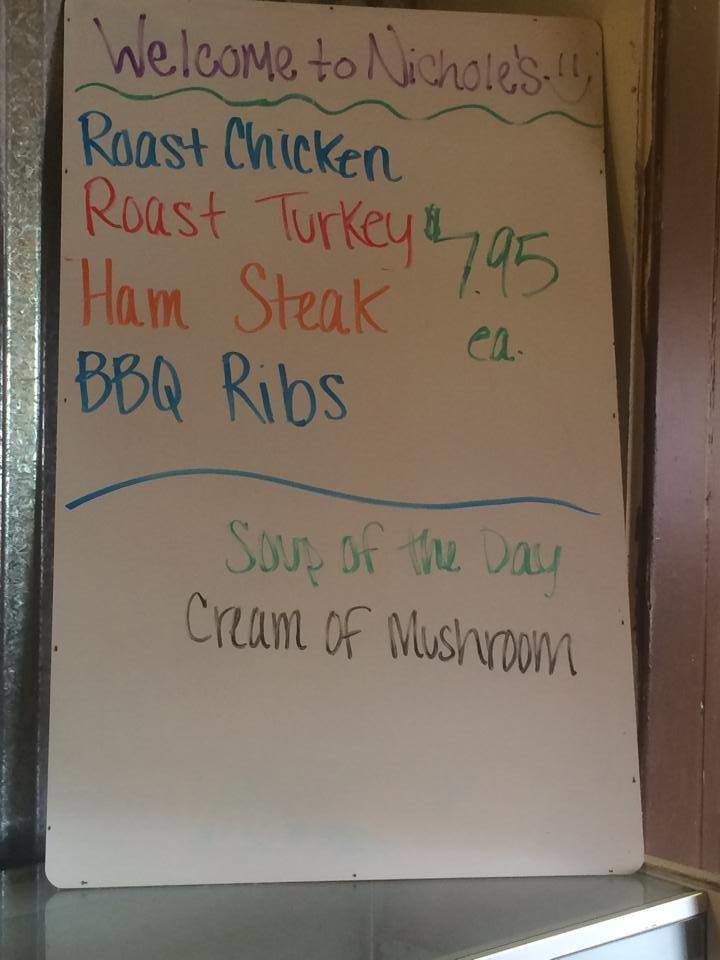 Welcome to Nichole's. :)
Roast Chicken
Roast Turkey
Ham Steak
BBQ Ribs
$7.95
ea.
Soup of the Day
Cream of Mushroom